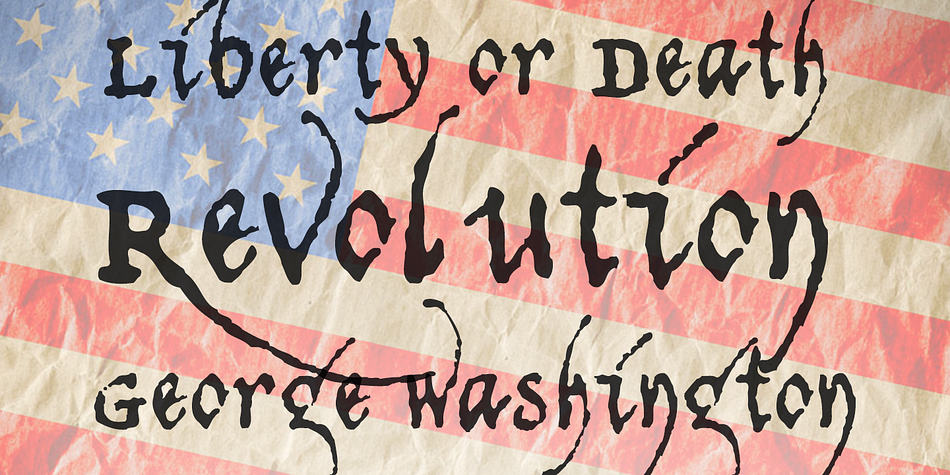 Liberty or Death
Revolution
George Washington